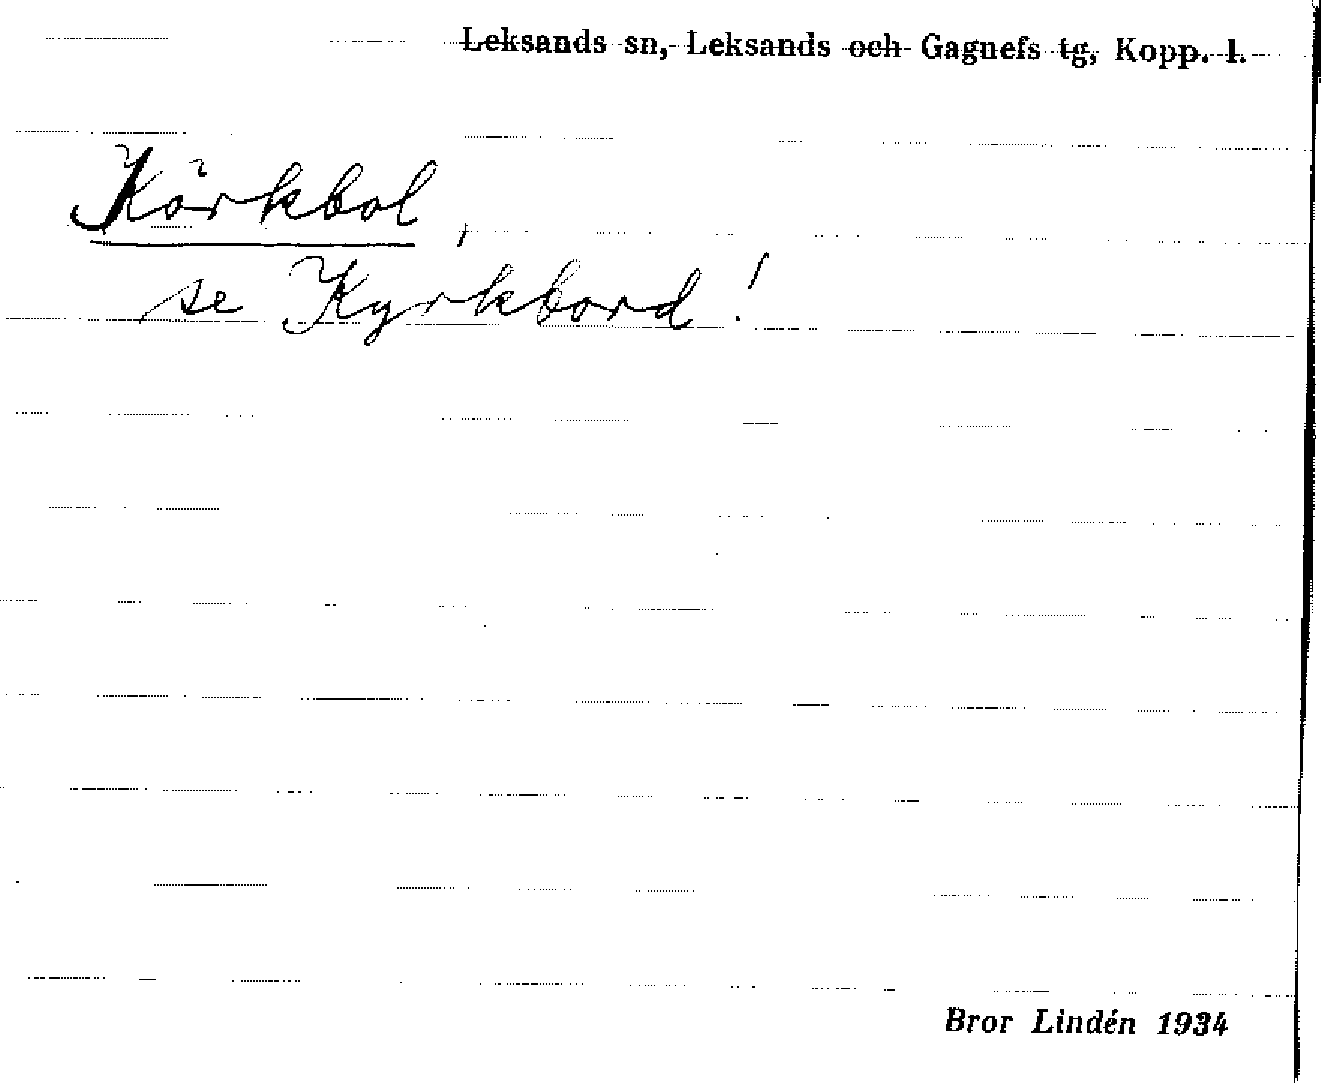 Leksands sn, Leksands och Gagnefs tg, Kopp. l.
Körkbol,
se Kyrkbord!
Bror Lindén 1934